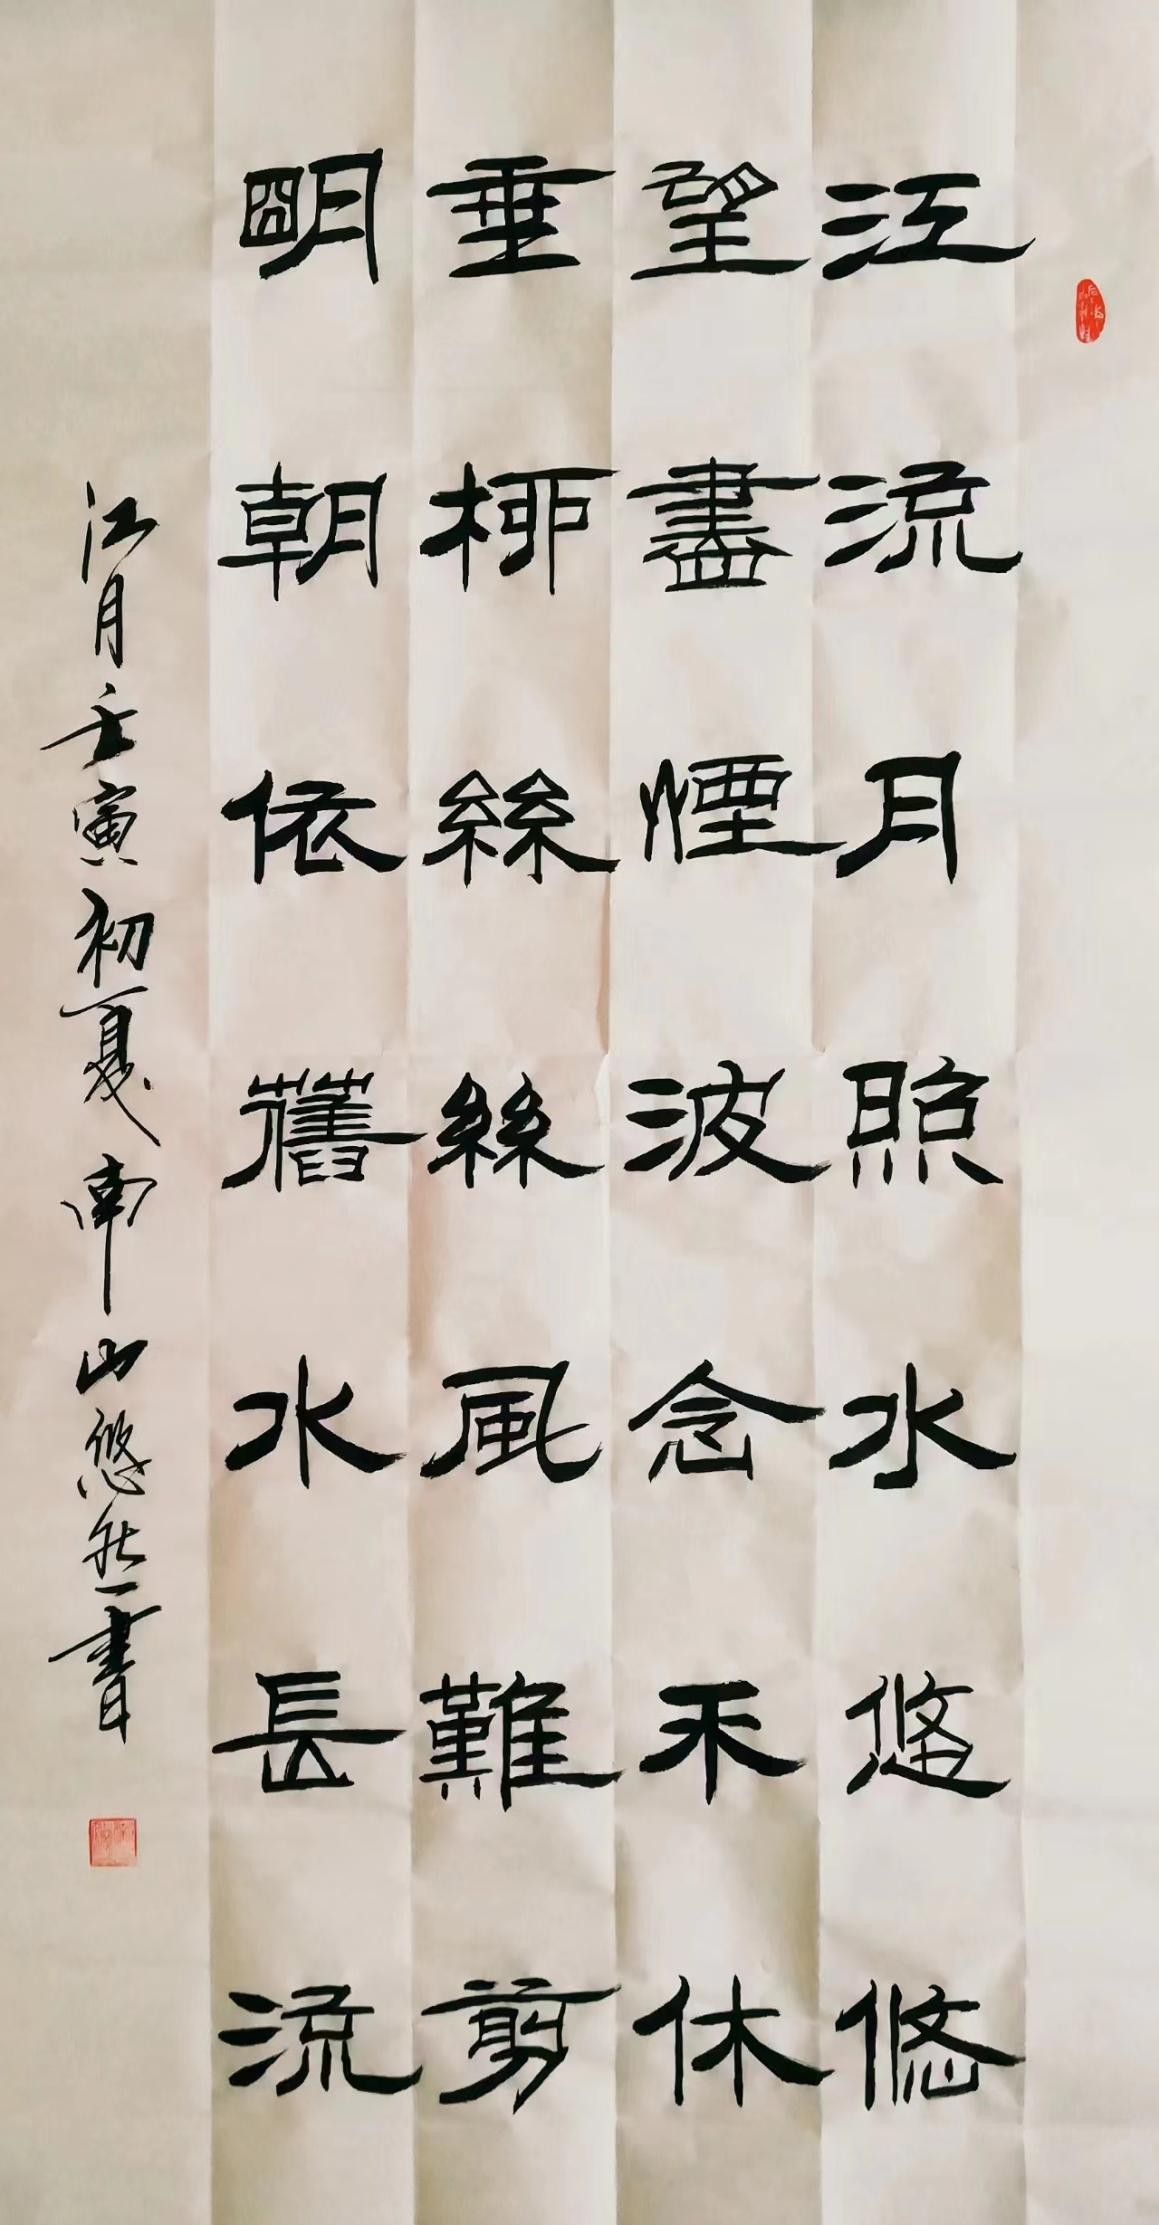 江流月照水悠悠
望盡煙波念未休
垂柳絲絲風難剪
明朝依舊水長流
江月壬寅初夏南山悠然書